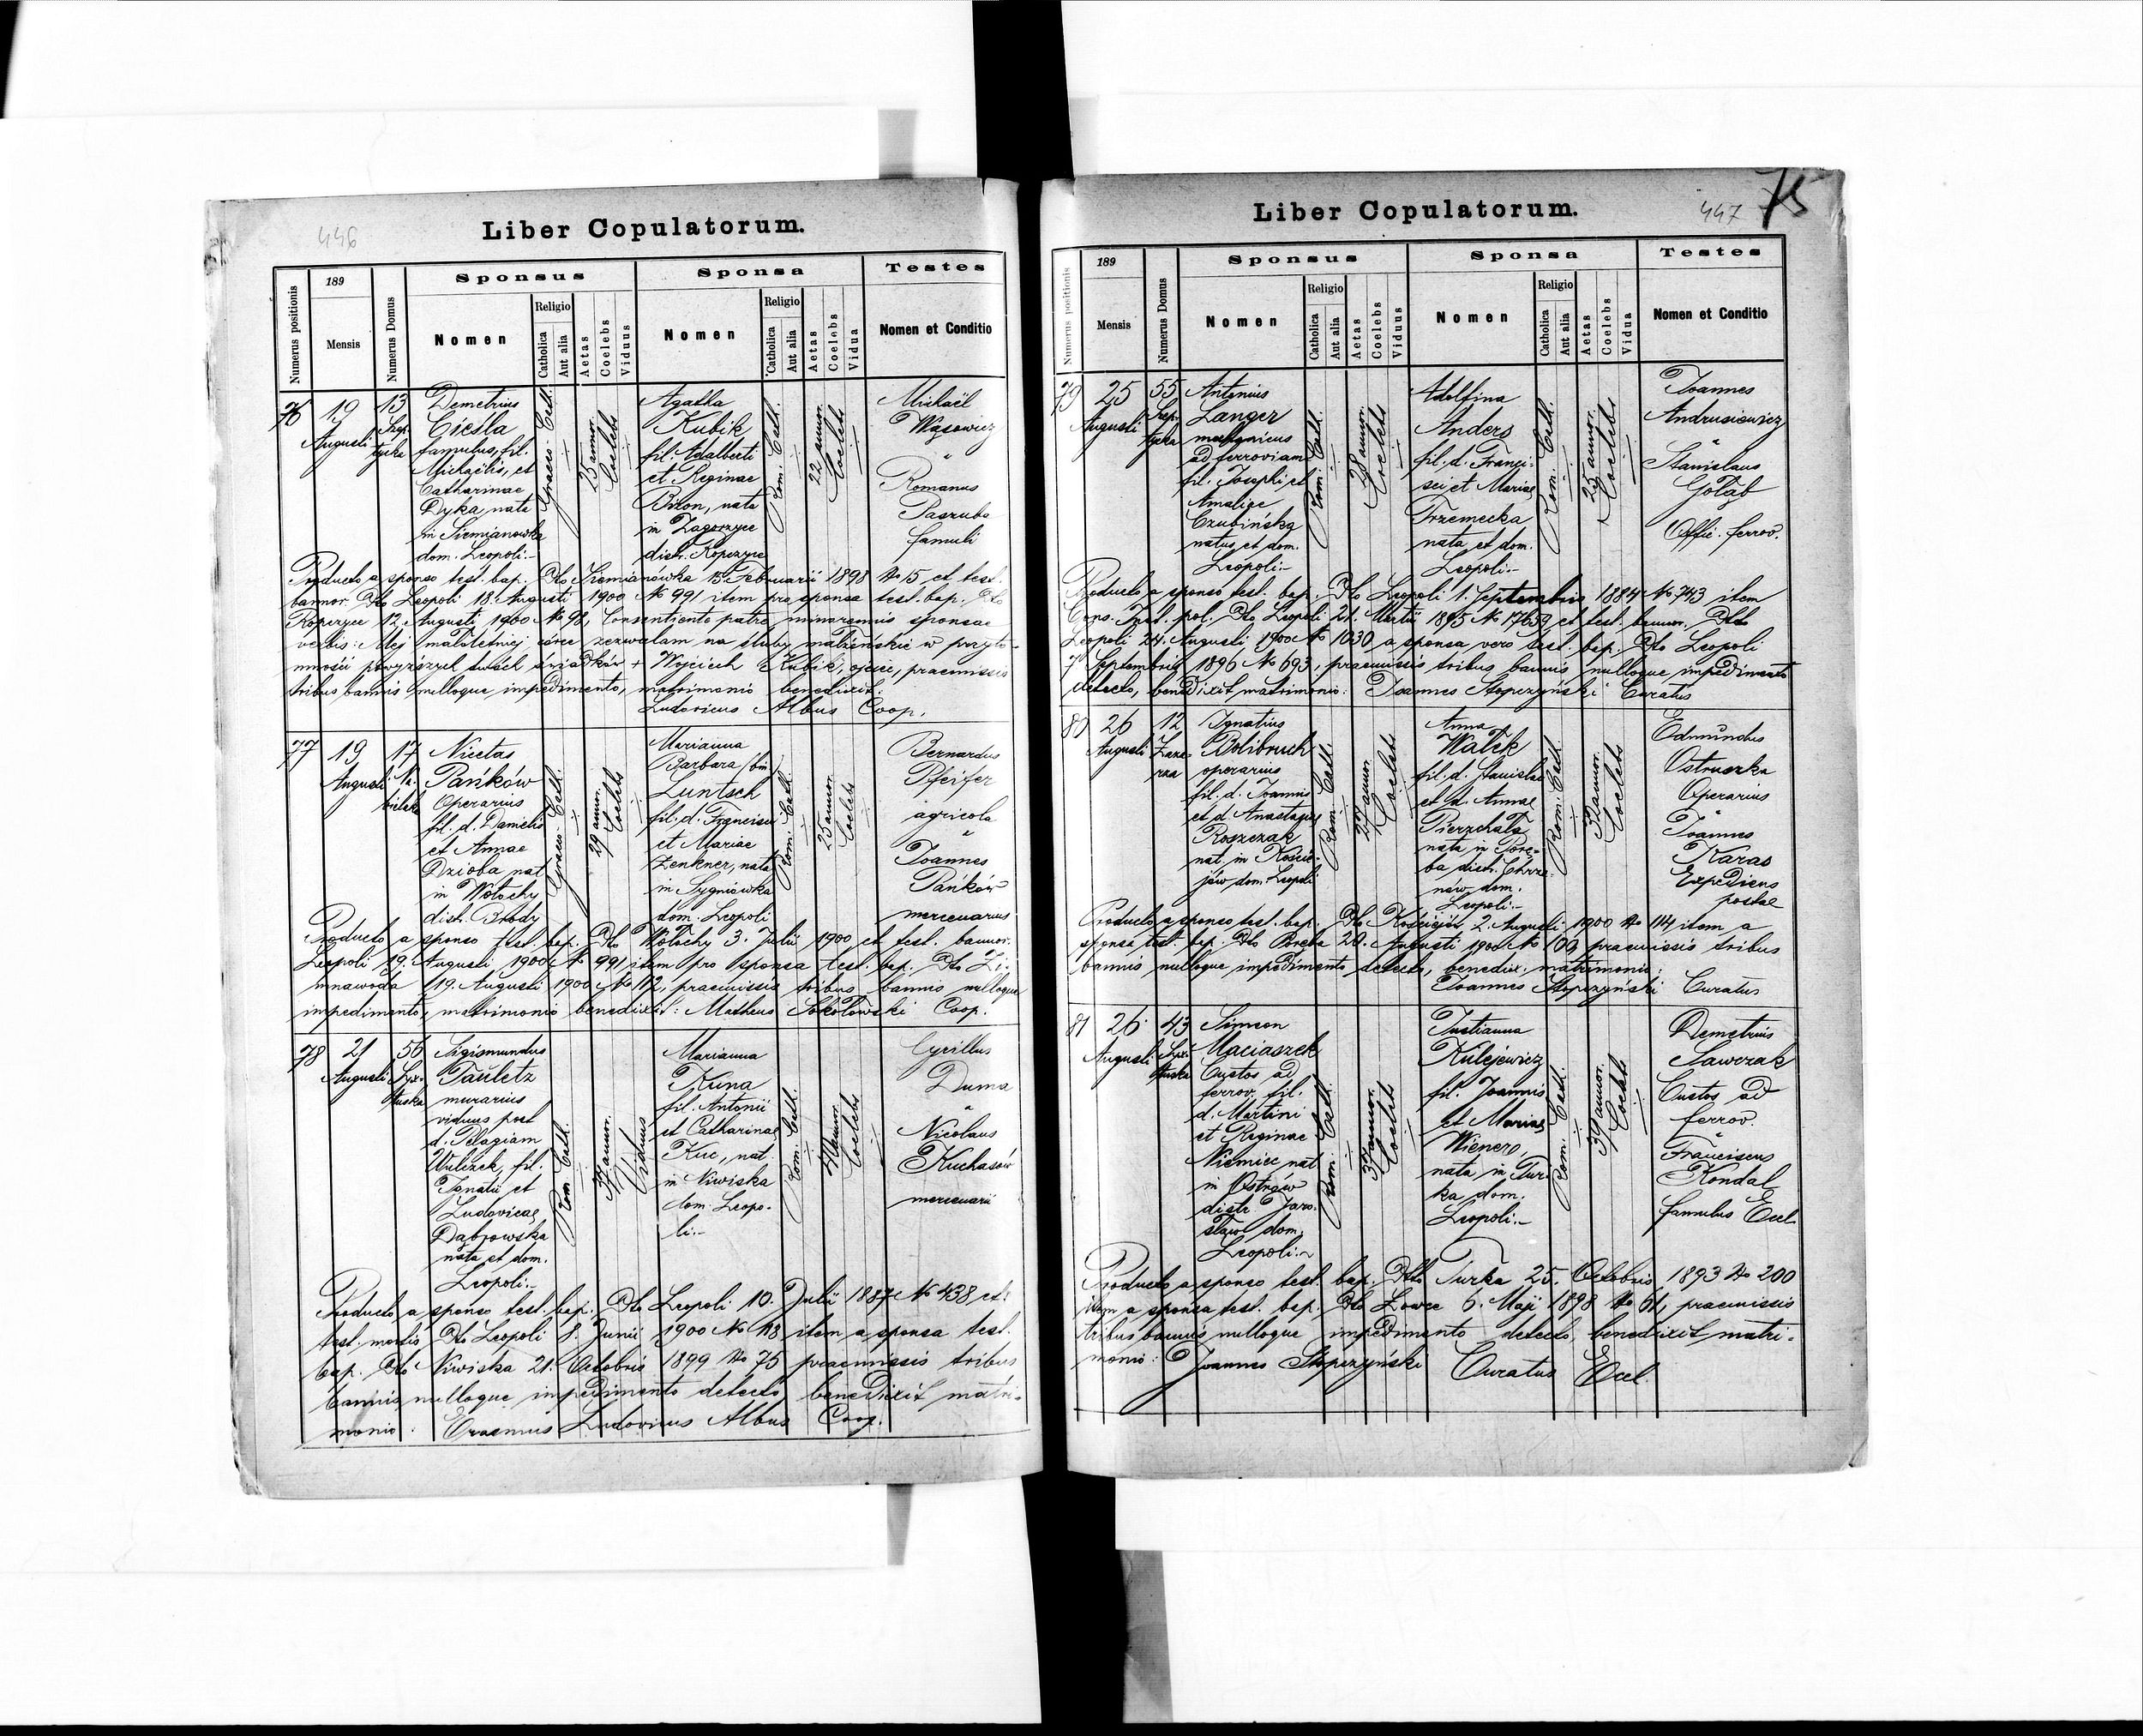 446
Liber Copulatorum.
Numerus positionis
189
Mensis
Numerus Domus
Sponsus
Nomen
Religio
Catholica
Aut alia
Aetas
Coelebs
Viduus
Sponsa
Nomen
Religio
Catholica
Aut alia
Aetas
Coelebs
Vidua
Testes
Nomen et Conditio
76
19
Augusti
13
Demetrius
Ciesla
famulus, fil.
Michaëlis, et
Catharinae
Dyka, nata
in Siemianowka
dom. Leopoli.-
Graeco Cath.
25 annor.
Coelebs
Agatha
Kubik
fil. Adalberti
et Reginae
Bizon, nata
in Zagorzyce
distr. Ropczyce
Rom. Cath.
22 annor.
Coelebs
Michaël
Wąsowicz
"
Romanus
Paszuba
famuli
Producto a sponso test. bap. Dto Siemianówka 15 Februarii 1898 No 15 et test.
bannor. Dto Leopoli 18. Augusti 1900 No 991 item pro sponsa test. bap. Dto
Ropczyce 12. Augusti 1900 No 98, Consentiente patre minorennis sponsae
verbis: Mej małoletniej córce zezwalam na śluby małżeńskie w przyto-
mności powyższych dwóch świadków + Wojciech Kubik, ojciec, praemissis
tribus bannis nulloque impedimento, matrimonio benedixit:
Ludovicus Albus Coop.
77
19
Augusti
17
Na
bielek
Nicetas
Pańków
Operarius
fil. d. Danielis
et Annae
Dzioba nat
in Wołochy
distr. Brody
Graeco Cath.
29 annor.
Coelebs
Marianna
Barbara (bin)
Luntsch
fil. d. Francisci
et Mariae
Zenkner, nata
in Sygniówka
dom. Leopoli
Rom. Cath.
25 annor.
Coelebs
Bernardus
Pfeifer
agricola
"
Joannes
Pańków
mercenarius
Producto a sponso test. bap. Dto Wołochy 3. Julii 1900 et test. bannor.
Leopoli 19. Augusti 1900 No 991 item pro sponsa test. bap. Dto Zi-
mnawoda 19. Augusti 1900 No 112, praemissis tribus bannis nulloque
impedimento, matrimonio benedixit: Matheus Sokołowski Coop.
78
21
Augusti
56
Syx-
tuska
Sigismundus
Pauletz
murarius
viduus post
d. Pelagiam
Wilczek, fil.
Ignatii et
Ludovicae
Dąbrowska
nata et dom.
Leopoli.-
Rom. Cath.
37 annor.
Viduus
Marianna
Kuna
fil. Antonii
et Catharinae
Kuc, nat.
in Niwiska
dom. Leopo-
li.-
Rom. Cath.
Coelebs
Cyrillus
Duma
"
Nicolaus
Kuchasów
mercenarii
Producto a sponso test. bap. Dto Leopoli 10. Julii 1887 No 438 et
test. mortis Dto Leopoli 8. Junii 1900 No 113 item a sponsa test.
bap. Dto Niwiska 21. Octobris 1899 No 75 praemissis tribus
bannis nulloque impedimento detecto, benedixit matri-
monio: Erasmus Ludovicus Albus Coop.
447
75
Liber Copulatorum.
Numerus positionis
189
Mensis
Numerus Domus
Sponsus
Nomen
Religio
Catholica
Aut alia
Aetas
Coelebs
Viduus
Sponsa
Nomen
Religio
Catholica
Aut alia
Aetas
Coelebs
Vidua
Testes
Nomen et Conditio
79
25
Augusti
55
Antonius
Langer
ad ferroviam
fil. Josephi et
Amaliae
Czubińska
natus et dom.
Leopoli.-
Rom. Cath.
28 annor.
Coelebs
Adolfina
Anders
fil. d. Franci-
sci et Mariae
Trzemecka
nata et dom.
Leopoli.-
Rom. Cath.
25 annor.
Coelebs
Joannes
Andrusiewicz
"
Stanislaus
Gołąb
Offic. ferrov.
Producto a sponso test. bap. Dto Leopoli 1. Septembris 1884 No 743 item
Cons. Inst. pol. Dto Leopoli 21. Martii 1895 No 17659 et test. bannor. Dto
Leopoli 24. Augusti 1900 No 1030 a sponsa vero test. bap. Dto Leopoli
7 Septembris 1896 No 693, praemissis tribus bannis nulloque impedimento
detecto, benedixit matrimonio: Joannes Stopczyński Curatus
80
26
Augusti
12
Ignatius
Bolibruch
operarius
fil. d. Joannis
et d. Anastasiae
Roszczak
nat. in Kości-
jów dom. Leopoli
Rom. Cath.
29 annor.
Coelebs
Anna
Watek
fil. d. Stanislai
et d. Annae
Pierzchała
nata in Porę-
ba distr. Chrza-
nów dom.
Leopoli.-
Rom. Cath.
32 annor.
Coelebs
Edmundus
Ostruszka
Operarius
"
Joannes
Karas
Expediens
postae
Producto a sponso test. bap. Dto. Kościejów 2. Augusti 1900 No 114 item a
sponsa test. bap. Dto Poreba 20. Augusti 1900 No 109 praemissis tribus
bannis nulloque impedimento detecto, benedix. matrimonio:
Joannes Stopczyński Curatus
81
26
Augusti
43
Syx-
tuska
Simeon
Maciaszek
Custos ad
ferrov. fil.
d. Martini
et Reginae
Niemiec nat
in Ostrów
distr. Jaro-
sław dom.
Leopoli.-
Rom. Cath.
37 annor.
Coelebs
Justianna
Kulejewicz
fil. Joannis
et Mariae
Wienero,
nata in Tur-
ka dom.
Leopoli.-
Rom. Cath.
39 annor.
Coelebs
Demetrius
Sawczak
Custos ad
ferrov.
"
Franciscus
Kondal
famulus Eccl.
Producto a sponso test. bap. Dto Turka 25. Octobris 1893 No 200
item a sponsa test. bap. Dto Łowce 6. Maji 1898 No 61, praemissis
tribus bannis nulloque impedimento detecto, benedixit matri-
monio: Joannes Stopczyński Curatus Eccl.